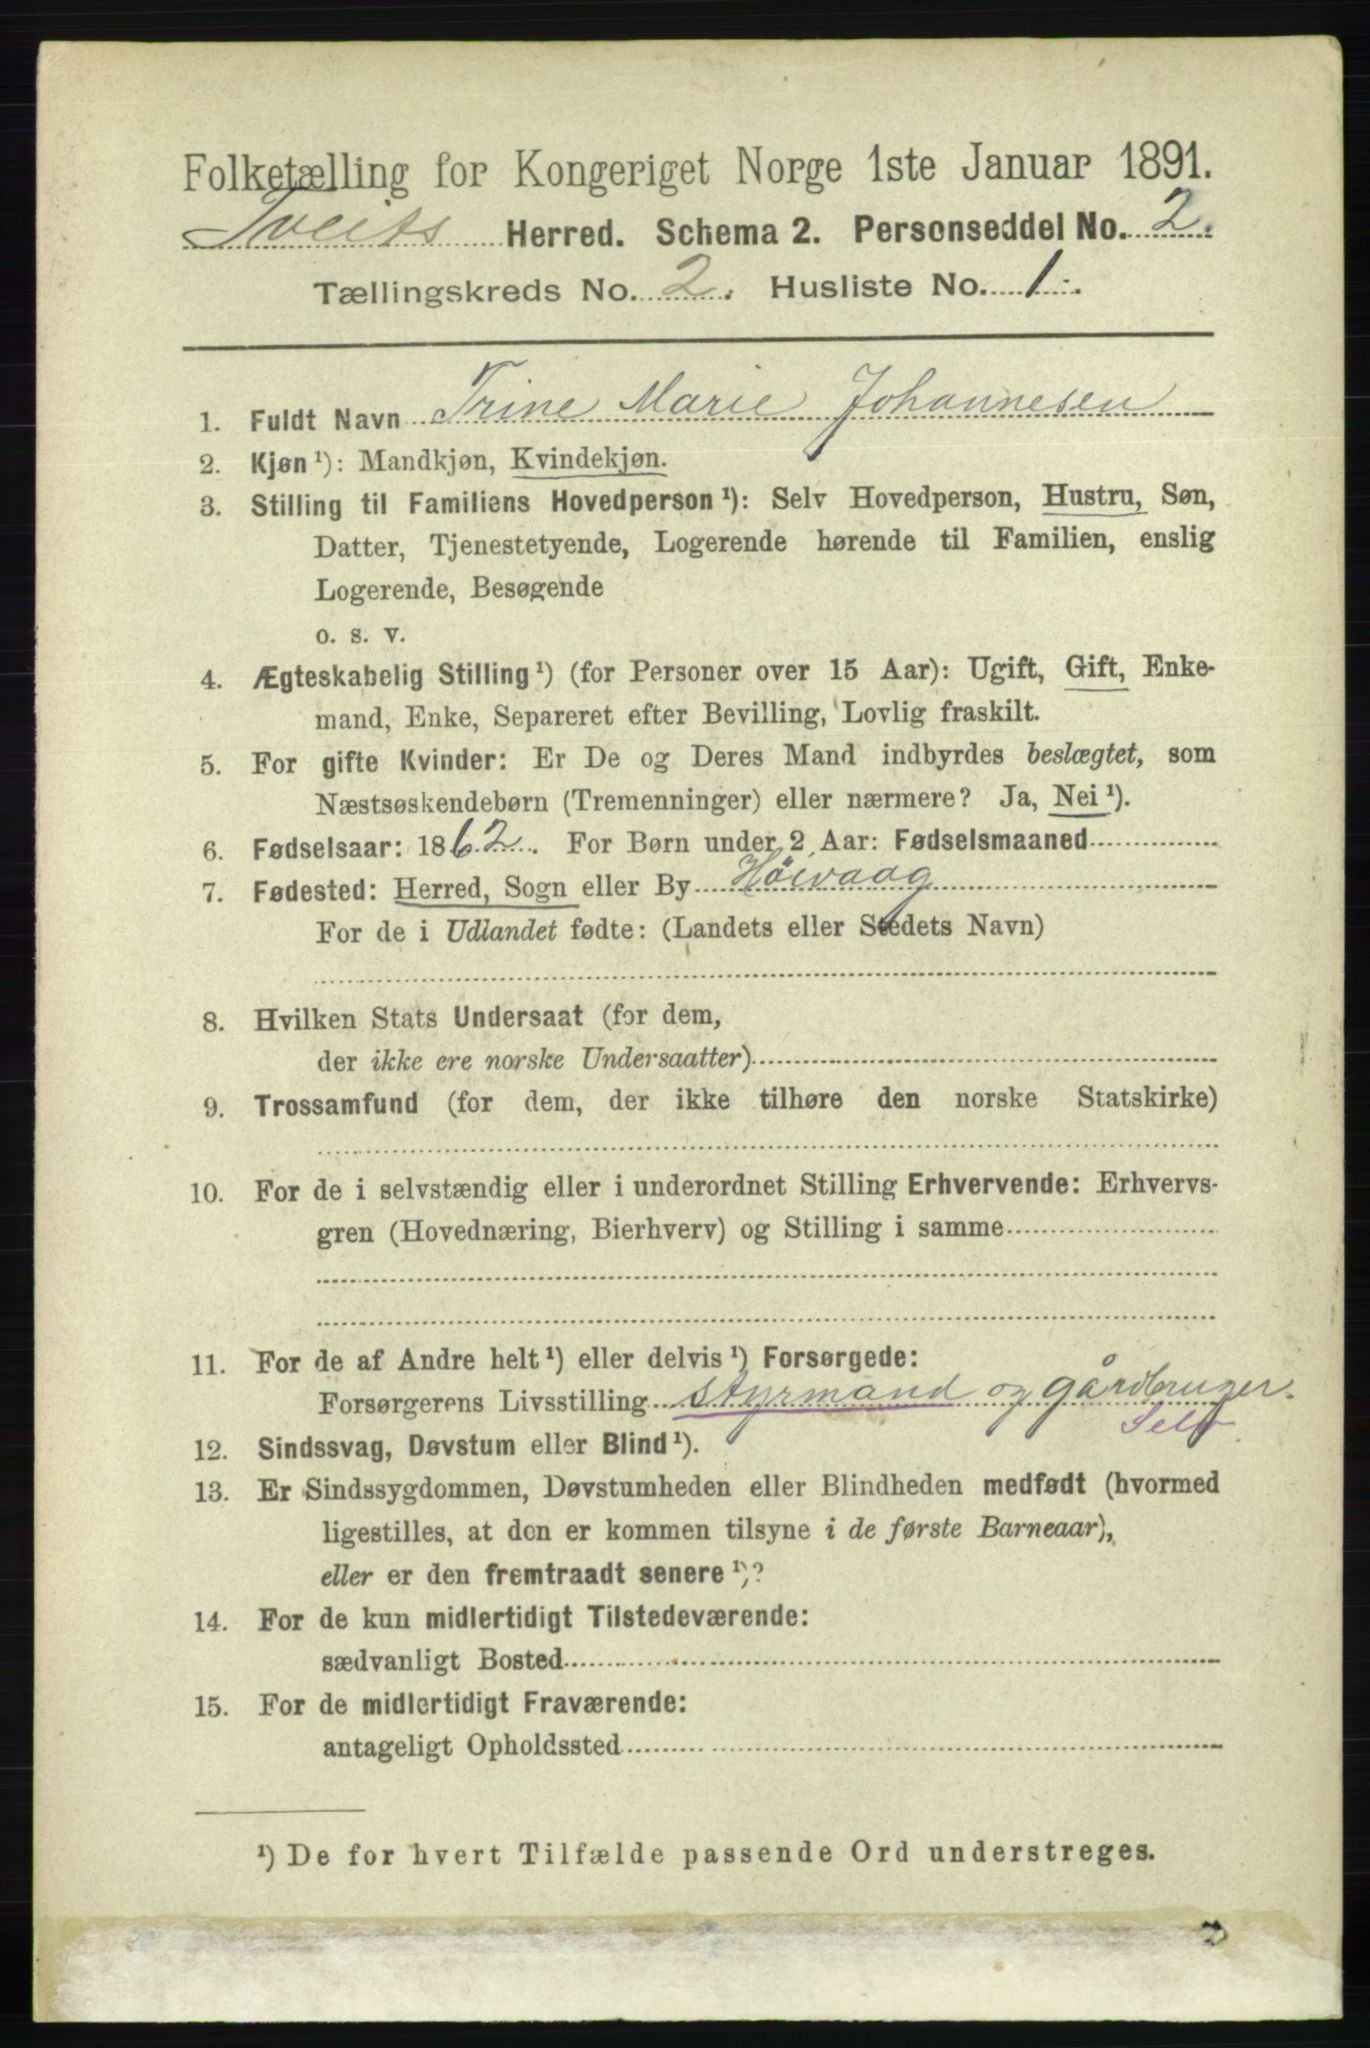 Folketælling for Kongeriget Norge 1ste Januar 1891.
Tveits Herred. Schema 2. Personseddel No. 2.
Tællingskreds No. 2. Husliste No. 1.
1. Fuldt Navn Trine Marie Johannesen
2. Kjøn¹): Mandkjøn, Kvindekjøn.
3. Stilling til Familiens Hovedperson¹): Selv Hovedperson, Hustru, Søn,
Datter, Tjenestetyende, Logerende hørende til Familien, enslig
Logerende, Besøgende
o. s. v.
4. Ægteskabelig Stilling¹) (for Personer over 15 Aar): Ugift, Gift, Enke-
mand, Enke, Separeret efter Bevilling, Lovlig fraskilt.
5. For gifte Kvinder: Er De og Deres Mand indbyrdes beslægtet, som
Næstsøskendebørn (Tremenninger) eller nærmere? Ja, Nei¹).
6. Fødselsaar: 1862. For Børn under 2 Aar: Fødselsmaaned
7. Fødested: Herred, Sogn eller By Höivaag
For de i Udlandet fødte: (Landets eller Stedets Navn)
8. Hvilken Stats Undersaat (for dem,
der ikke ere norske Undersaatter)
9. Trossamfund (for dem, der ikke tilhøre den norske Statskirke)
10. For de i selvstændig eller i underordnet Stilling Erhvervende: Erhvervs-
gren (Hovednæring, Bierhverv) og Stilling i samme
11. For de af Andre helt¹) eller delvis¹) Forsørgede:
Forsørgerens Livsstilling styrmand og gårdbruger.
Selv
12. Sindssvag, Døvstum eller Blind¹).
13. Er Sindssygdommen, Døvstumheden eller Blindheden medfødt (hvormed
ligestilles, at den er kommen tilsyne i de første Barneaar),
eller er den fremtraadt senere¹)?
14. For de kun midlertidigt Tilstedeværende:
sædvanligt Bosted
15. For de midlertidigt Fraværende:
antageligt Opholdssted
¹) De for hvert Tilfælde passende Ord understreges.